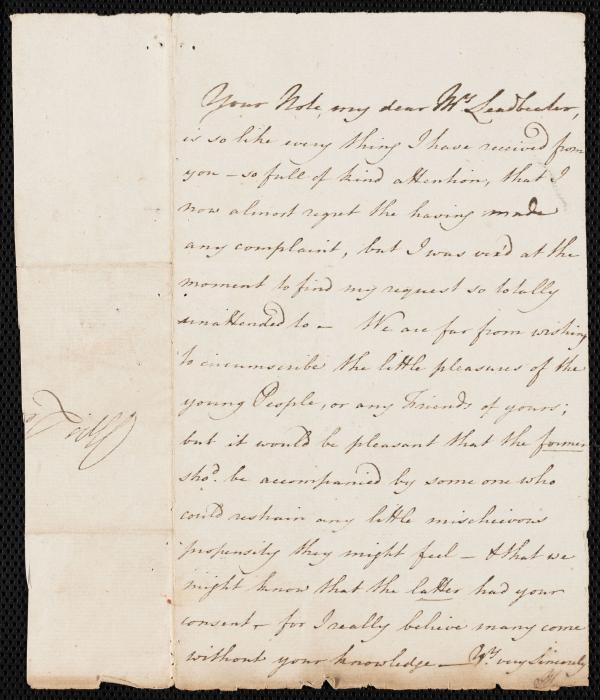 Your Note, my dear Mrs Leadbeater,
is so like every thing I have received from
you – so full of kind attention, that I
now almost regret the having made
any complaint, but I was vex'd at the
moment to find my request so totally
unattended to – We are far from wishing
to circumscribe the little pleasures of the
young People, or any Friends of yours;
but it would be pleasant that the former
shod. be accompanied by some one who
could restrain any little mischievous
propensity they might feel – & that we
might know that the latter had your
consent – for I really believe many come
without your knowledge – Yrs. very Sincerely